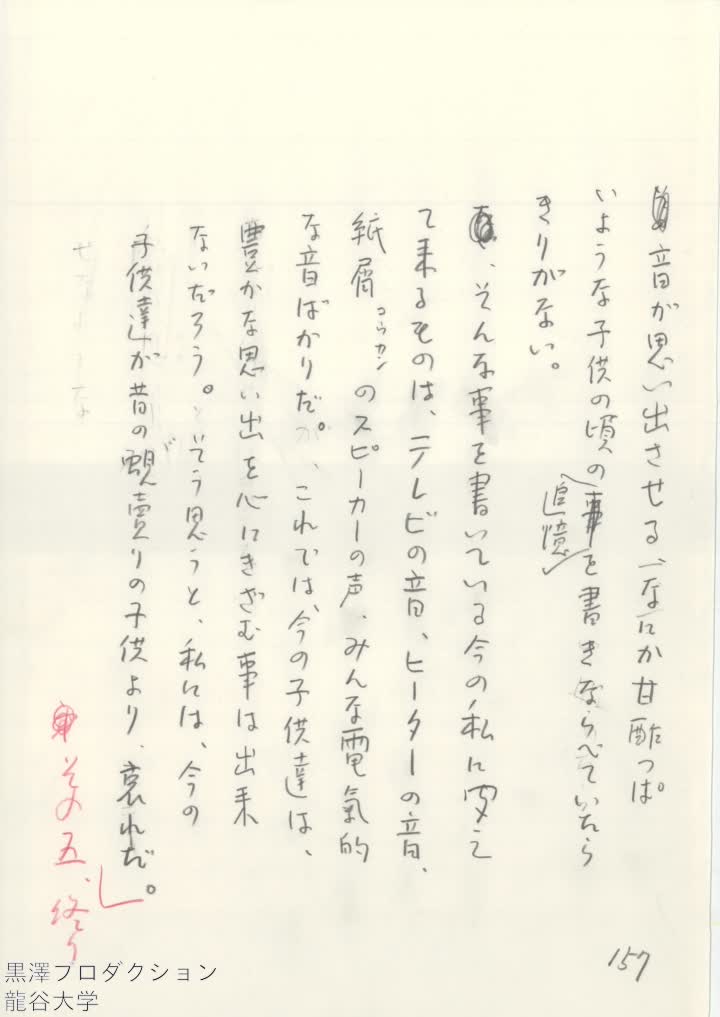 音が思い出させる、なにか甘酢っぱ
いような子供の頃の追憶を書きならべていたら
きりがない。
、そんな事を書いている今の私に聞え
て来るものは、テレビの音、ヒーターの音、
紙屑コウカンのスピーカーの声、みんな電氣的
な音ばかりだ。これでは、今の子供達は、
豊かな思い出を心にきざむ事は出来
ないだろう。そう思うと、私には、今の
子供達が昔の蜆売りの子供より、哀れだ。
その五、終り
157
黒澤プロダクション
龍谷大学